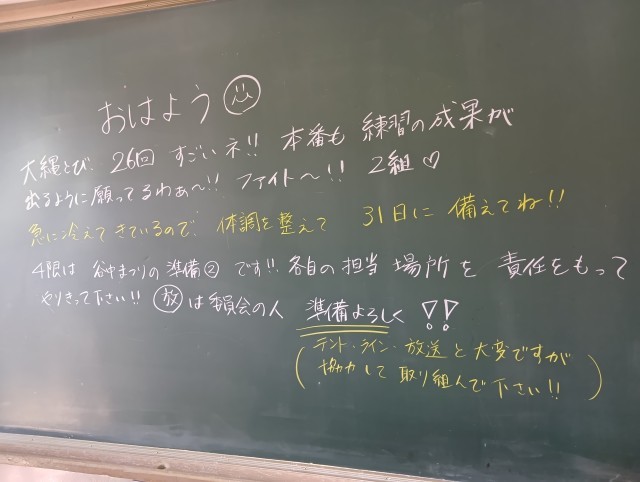 おはよう
大縄とび 26回 すごいネ!! 本番も 練習の成果が
出るように願ってるわぁ〜!! ファイト〜!! 2組♡
急に冷えてきているので、体調を整えて 31日に 備えてね!!
4限は 谷中まつりの準備② です!! 各自の担当 場所を 責任をもって
やりきって下さい!! 放 は委員会の人 準備よろしく!!
(テント・ライン・放送と大変ですが
協力して取り組んで下さい!!)